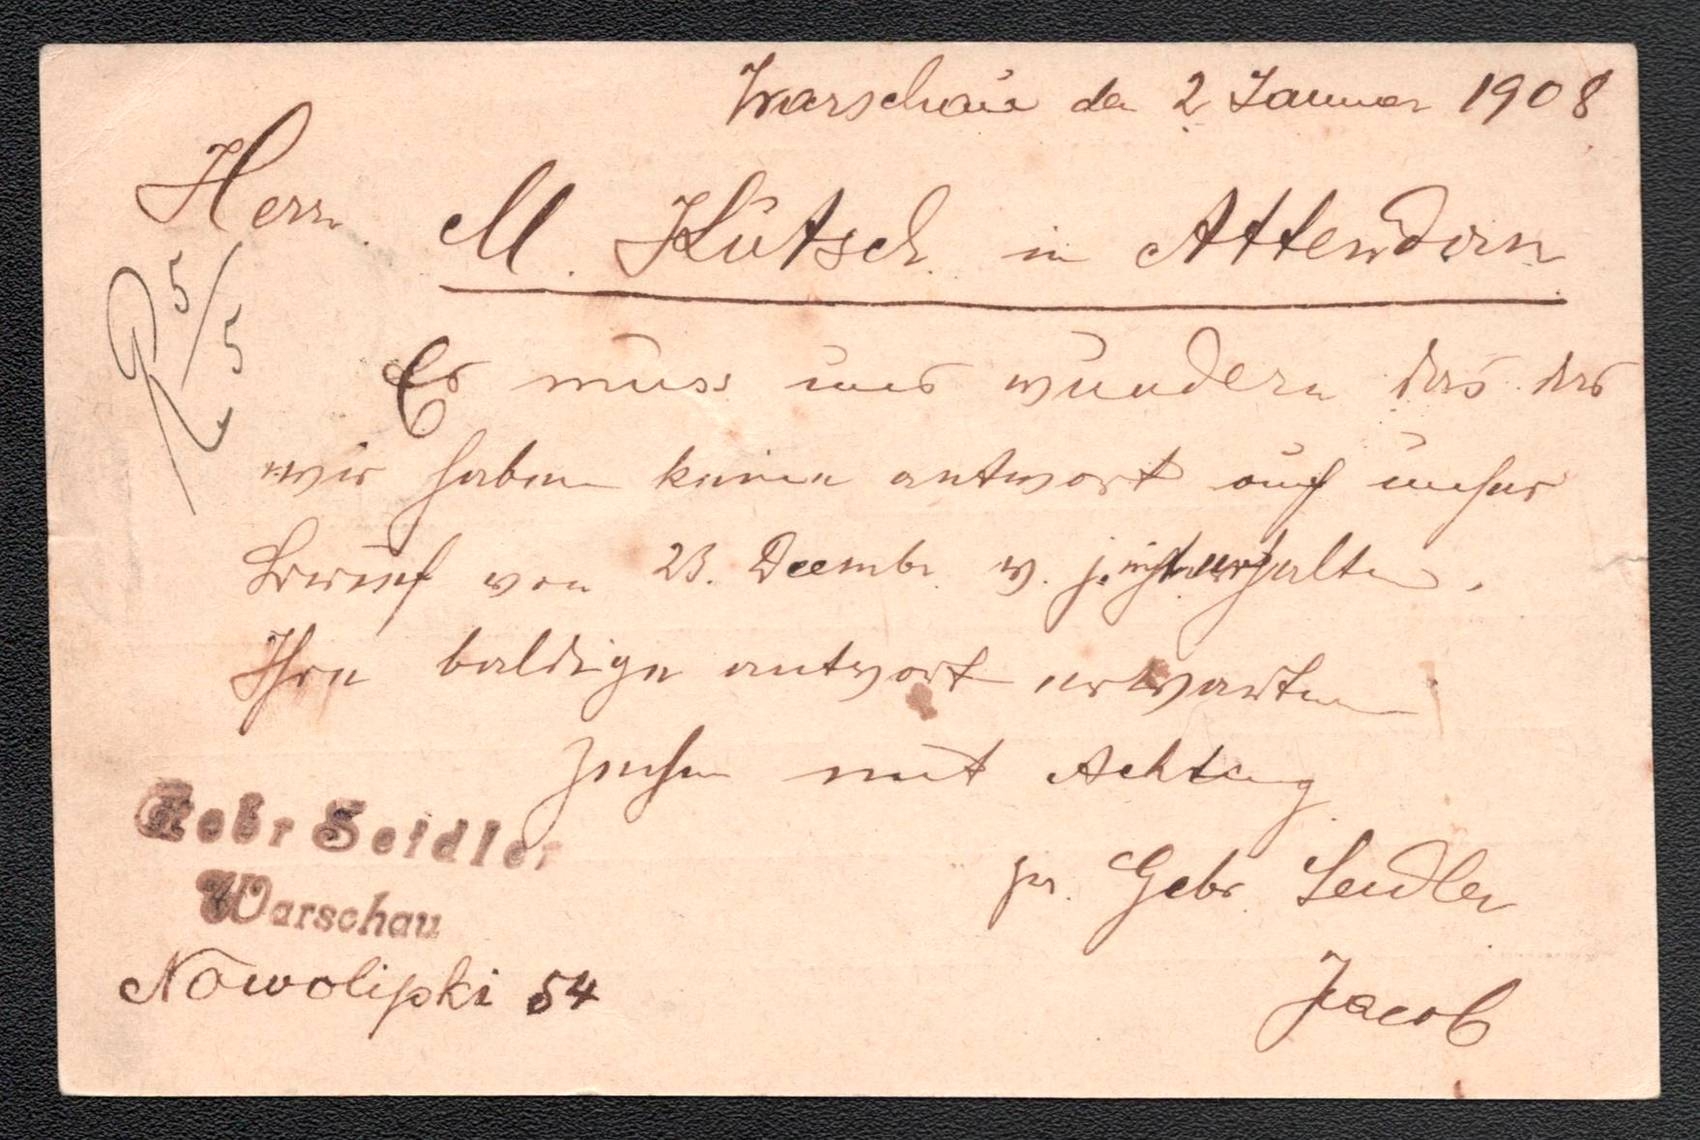 Warschau den 2 Januar 1908
Herrn
M. Kütsch in Attendorn
R 5/5
Es muss uns wundern das das
wir haben keine antwort auf unser
von 23. Decembr. v. j. erhalten.
Ihre baldige antwort erwarten
Zeichen mit Achtung
Gebr Seidler
Warschau
pr. Gebr. Seidler
Nowolipki 54
Jacob